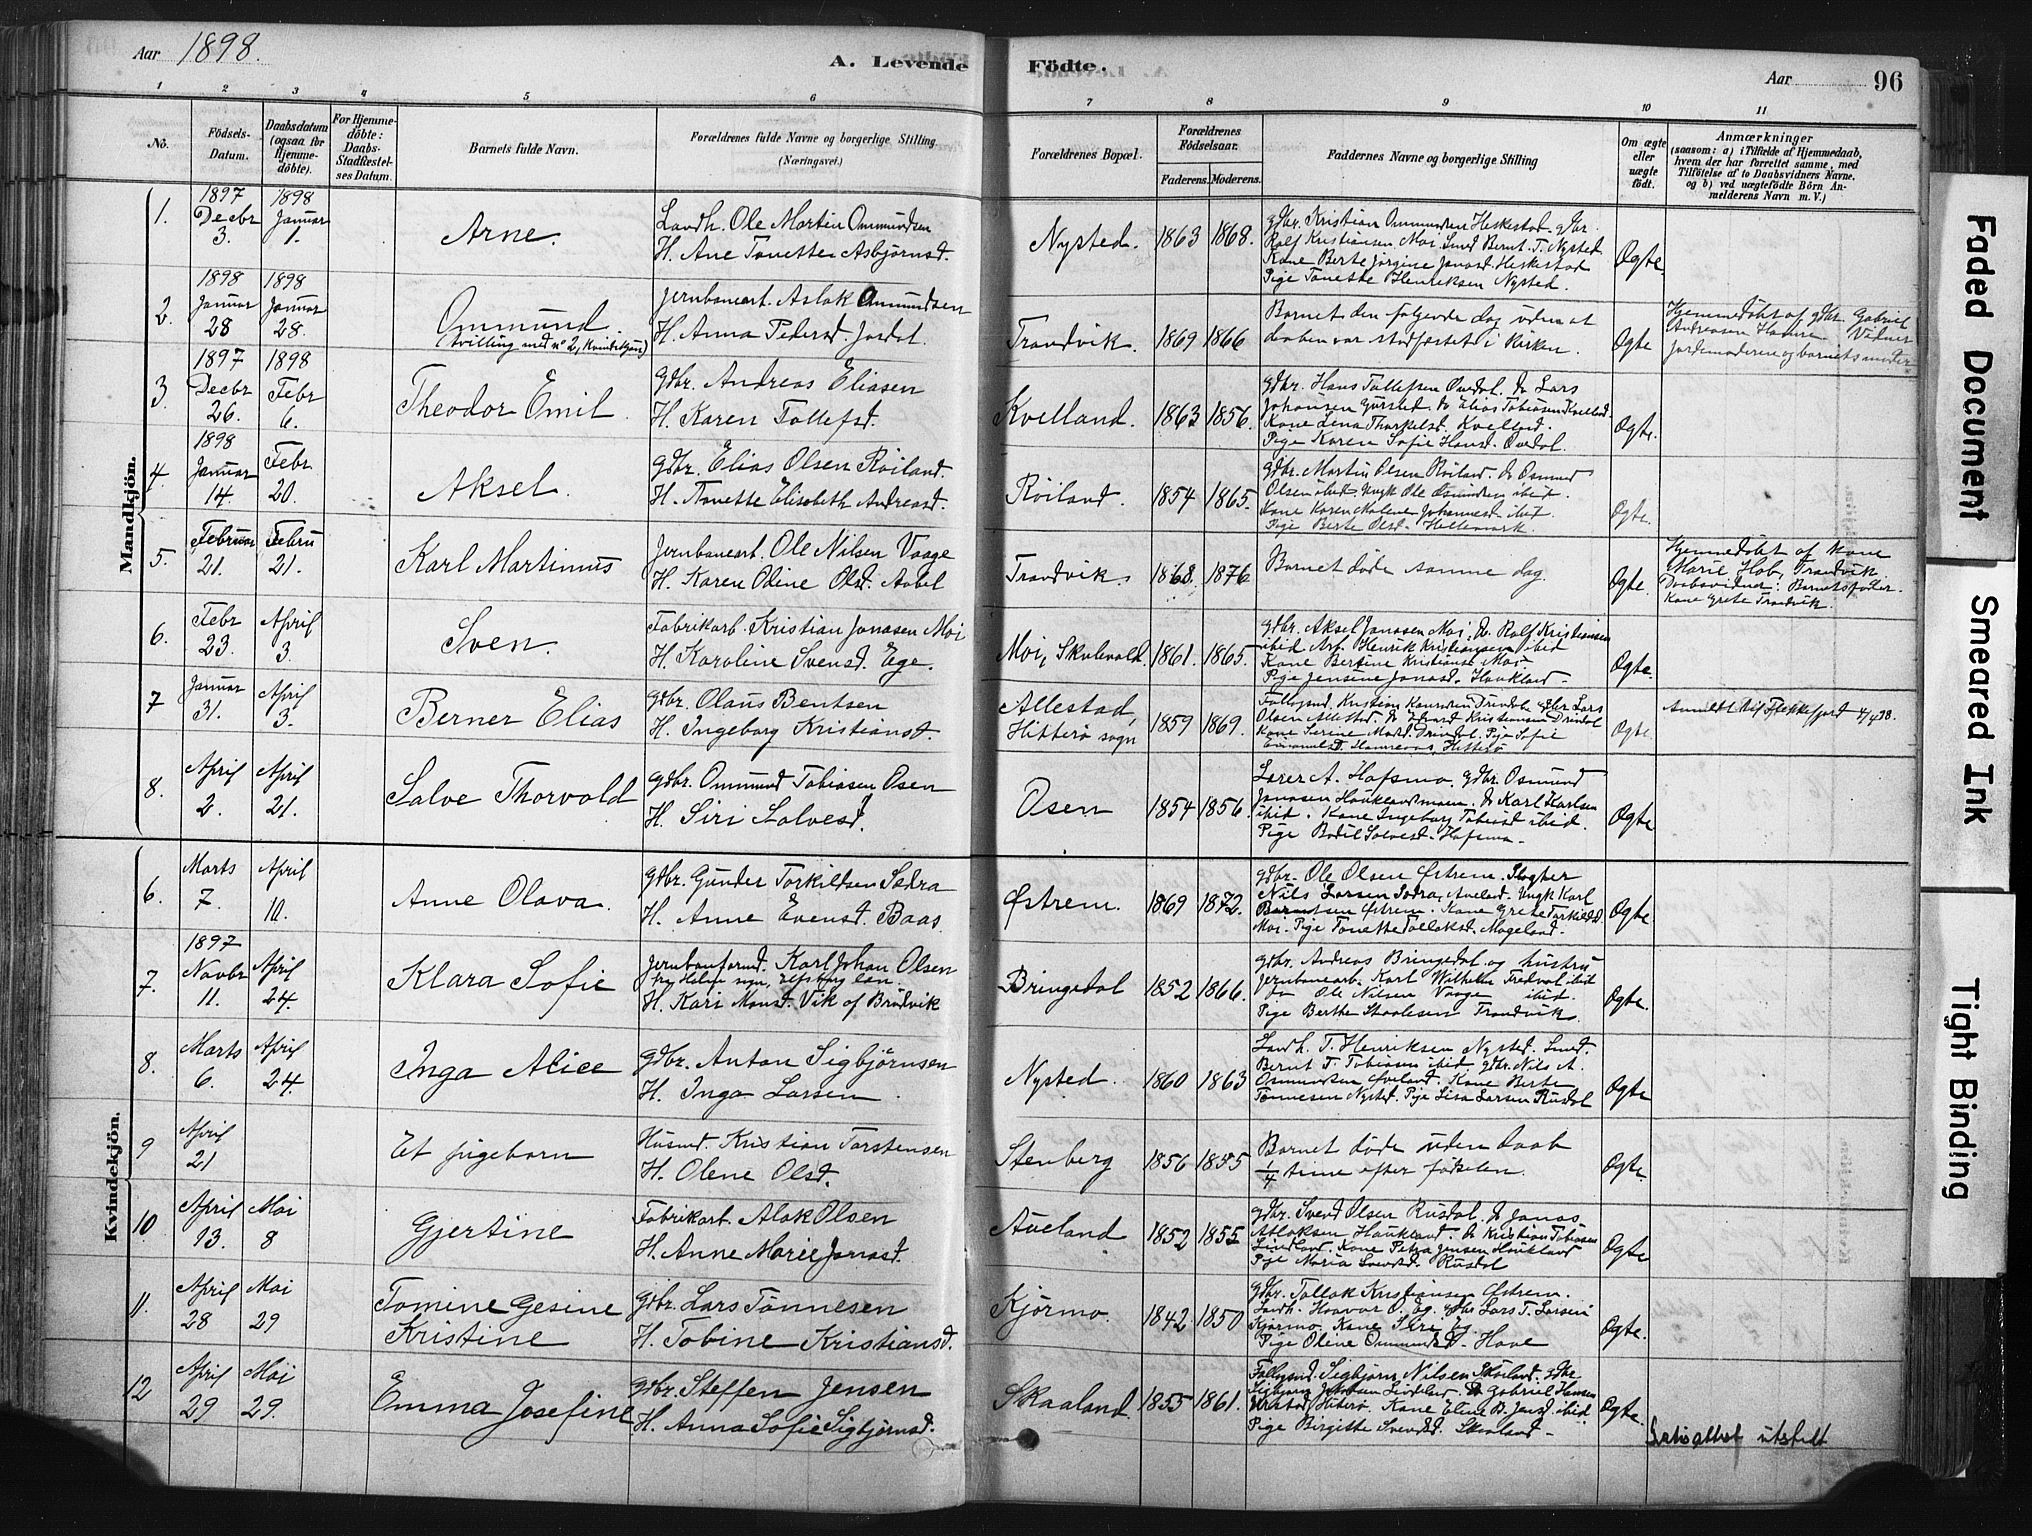 Aar 1898.
A. Levende Fødte.
Aar 96
1 2 3 4 5 6 7 8 9 10 11
No.
Fødsels-Datum.
Daabsdatum (ogsaa for Hjemmedøbte).
For Hjemmedøbte: Daabs-Stadfæstelses Datum.
Barnets fulde Navn.
Forældrenes fulde Navne og borgerlige Stilling (Næringsvei.)
Forældrenes Bopæl.
Forældrenes Fødselsaar.
Faderens. Moderens.
Faddernes Navne og borgerlige Stilling
Om ægte eller uægte født.
Anmærkninger
(saasom: a) i Tilfælde af Hjemmedaab,
hvem der har forrettet samme, med
Tilføielse af to Daabsvidners Navne,
og b) ved uægtefødte Børn An-
melderens Navn m. V.)
Mandkjøn.
1. 1897 Decbr 3. 1898 Januar 1. Arne.
Landh. Ole Martin Ommundsen
H. Ane Tonette Asbjørnsd.
Nysted. 1863 1868.
gdbr. Kristian Ommundsen Heskestad. gdbr.
Rolf Kristiansen Moi. Smed Bernt T. Nysted
Kone Berte Jørgine Jonasd. Heskestad
Pige Tonette Henriksen Nysted.
Ægte.
2. 1898 Januar 28 1898 Januar 28. Ommund.
Tvilling med nº 2, Kvindekjøn)
Jernbanearb. Aslak Ommundsen
H. Anna Pedersd. Jordal.
Trandvik. 1869 1866
Barnet den følgende dag uden at
daaben var stadfæstet i kirken.
Ægte
Hjemmedøbt af gdbr. Gabriel
Andreasen Hamre. Vidner
jordemoderen og barnets moder
3. 1897 Decbr 26. 1898 Febr 6. Theodor Emil.
Gdbr. Andreas Eliasen
H. Karen Tollefsd.
Kvelland. 1863 1856.
gdbr. Hans Tollefsen Øvedal. do Lars
Johansen Gursted. do Elias Tobiasen Kvelland.
Kone Lena Thorkelsd. Kvelland.
Pige Karen Sofie Hansd. Øvedal.
Ægte.
4. 1898 Januar 14. Febr 20. Aksel.
Gdbr. Elias Olsen Røiland.
H. Tonette Elisabeth Andreasd.
Røiland. 1854 1865.
gdbr. Martin Olsen Røiland. do Osmund
Olsen ibid. Ungk Ole Osmundsen ibid.
Kone Karen Malene Johannesd. ibid.
Pige Berte Olsd. Hellemark.
Ægte.
5. Februar 21. Febru 21. Karl Martinius
Jernbanearb. Ole Nilsen Vaage
H. Karen Oline Olsd. Aabel
Trandvik. 1868. 1876
Barnet døde samme dag.
Ægte.
Hjemmedøbt af kone
Marie Hob, Trandvik
Daabsvidner: Barnets fader.
Kone Grete Trandvik.
6. Febr 23. April 3. Sven.
Fabrikarb. Kristian Jonasen Moi
H. Karoline Svensd. Ege.
Moi, Skulevold. 1861. 1865.
gdbr. Aksel Jonasen Moi. do Rolf Kristiansen
ibid Arb. Henrik Kristiansen ibid
Kone Bertine Kristiansd. Moi
Pige Jensine Jonasd. Haukland.
Ægte.
7 Januar 31. April 3. Berner Elias
gdbr. Olaus Bentsen
H. Ingeborg Kristiansd.
Allestad, Hitterø sogn 1859 1869.
Olsen Allestad. do Edvard Kristiansen Drivdal
Ægte.
Anmeldt til Flekkefjord 4/4 98.
8. April 2. April 21. Salve Thorvald
gdbr. Ommund Tobiasen Osen
H. Siri Salvesd.
Osen 1854 1856.
Lærer A. Hafsmo. gdbr. Osmund
Jonasen Hauklandsmoen. do Karl Karlsen
ibid. Kone Ingeborg Tobiasd ibid.
Pige Bodil Salvesd. Hafsmo.
Ægte
Kvindekjøn.
6. Marts 7. April 10. Anne Olava.
gdbr. Gunder Torkildsen Sødra
H. Anne Evensd. Baas.
Østrem. 1869 1872.
gdbr. Ole Olsen Østrem. Slagter
Nils Larsen Sodra, Aveland. Ungk Karl
Berntsen Østrem. Kone Grete Torkildsd
Moi. Pige Tonette Tollaksd. Mageland.
Ægte.
7. 1897 Novbr 11. April 24. Klara Sofie
Jernbanformd. Karl Johan Olsen
H. Kari Monsd. Vik of Brudvik
Bringedal 1852 1866.
gdbr. Andreas Bringedal og hustru
Jernbanearb. Karl Wilhelm Fredval ibid
do Ole Nilsen Vaage ibid.
Pige Berthe Staalesen Trandvik.
Ægte.
8. Marts 6. April 24. Inga Alice
gdbr. Anton Sigbjørnsen
H. Inga Larsen.
Nysted. 1860 1863
Landh. T. Henriksen Nysted. Smed.
Bernt T. Tobiasen ibid gdbr. Nils A.
Osmundsen Øveland. Kone Berte
Tønnesen Nysted. Pige Lisa Larsen Rusdal
Ægte
9 April 21 Et pigebarn
Husmd. Kristian Torstensen
H. Olene Olsd.
Stenberg 1856 1855
Barnet døde uden Daab
1/4 time efter fødselen.
Ægte
10 April 13. Mai 8 Gjertine
Fabrikarb. Aslak Olsen
H. Anne Marie Jonasd.
Aveland 1852 1855
gdbr. Svend Olsen Rusdal. do Jonas
Aslaksen Haukland. do Kristian Tobiasen
Lindland. Kone Petra Jensen Haukland
Pige Maria Svendsd. Rusdal
Ægte
11. April 28 Mai 29 Tomine Gesine Kristine
gdbr. Lars Tønnesen
H. Tobine Kristiansd.
Kjørmo. 1842. 1850
gdbr. Tollak Kristiansen Østrem.
Landh. Haavar O. Eg. gdbr Lars T. Larsen
Kjørmo. Kone Siri Eg
Pige Oline Ommundsd. Hove
Ægte.
12 April 29 Mai 29. Emma Josefine
gdbr. Steffen Jensen
H. Anna Sofie Sigbjørnsd.
Skaaland. 1855 1861.
Sigbjørn Jakobsen Lindland. do Gabriel Hansen
Hitterø. Kone Eline B. Jensd. ibid.
Pige Birgitte Svendsd. Skaaland
Ægte.
utstedt
Faded Document
Smeared Ink
Tight Binding